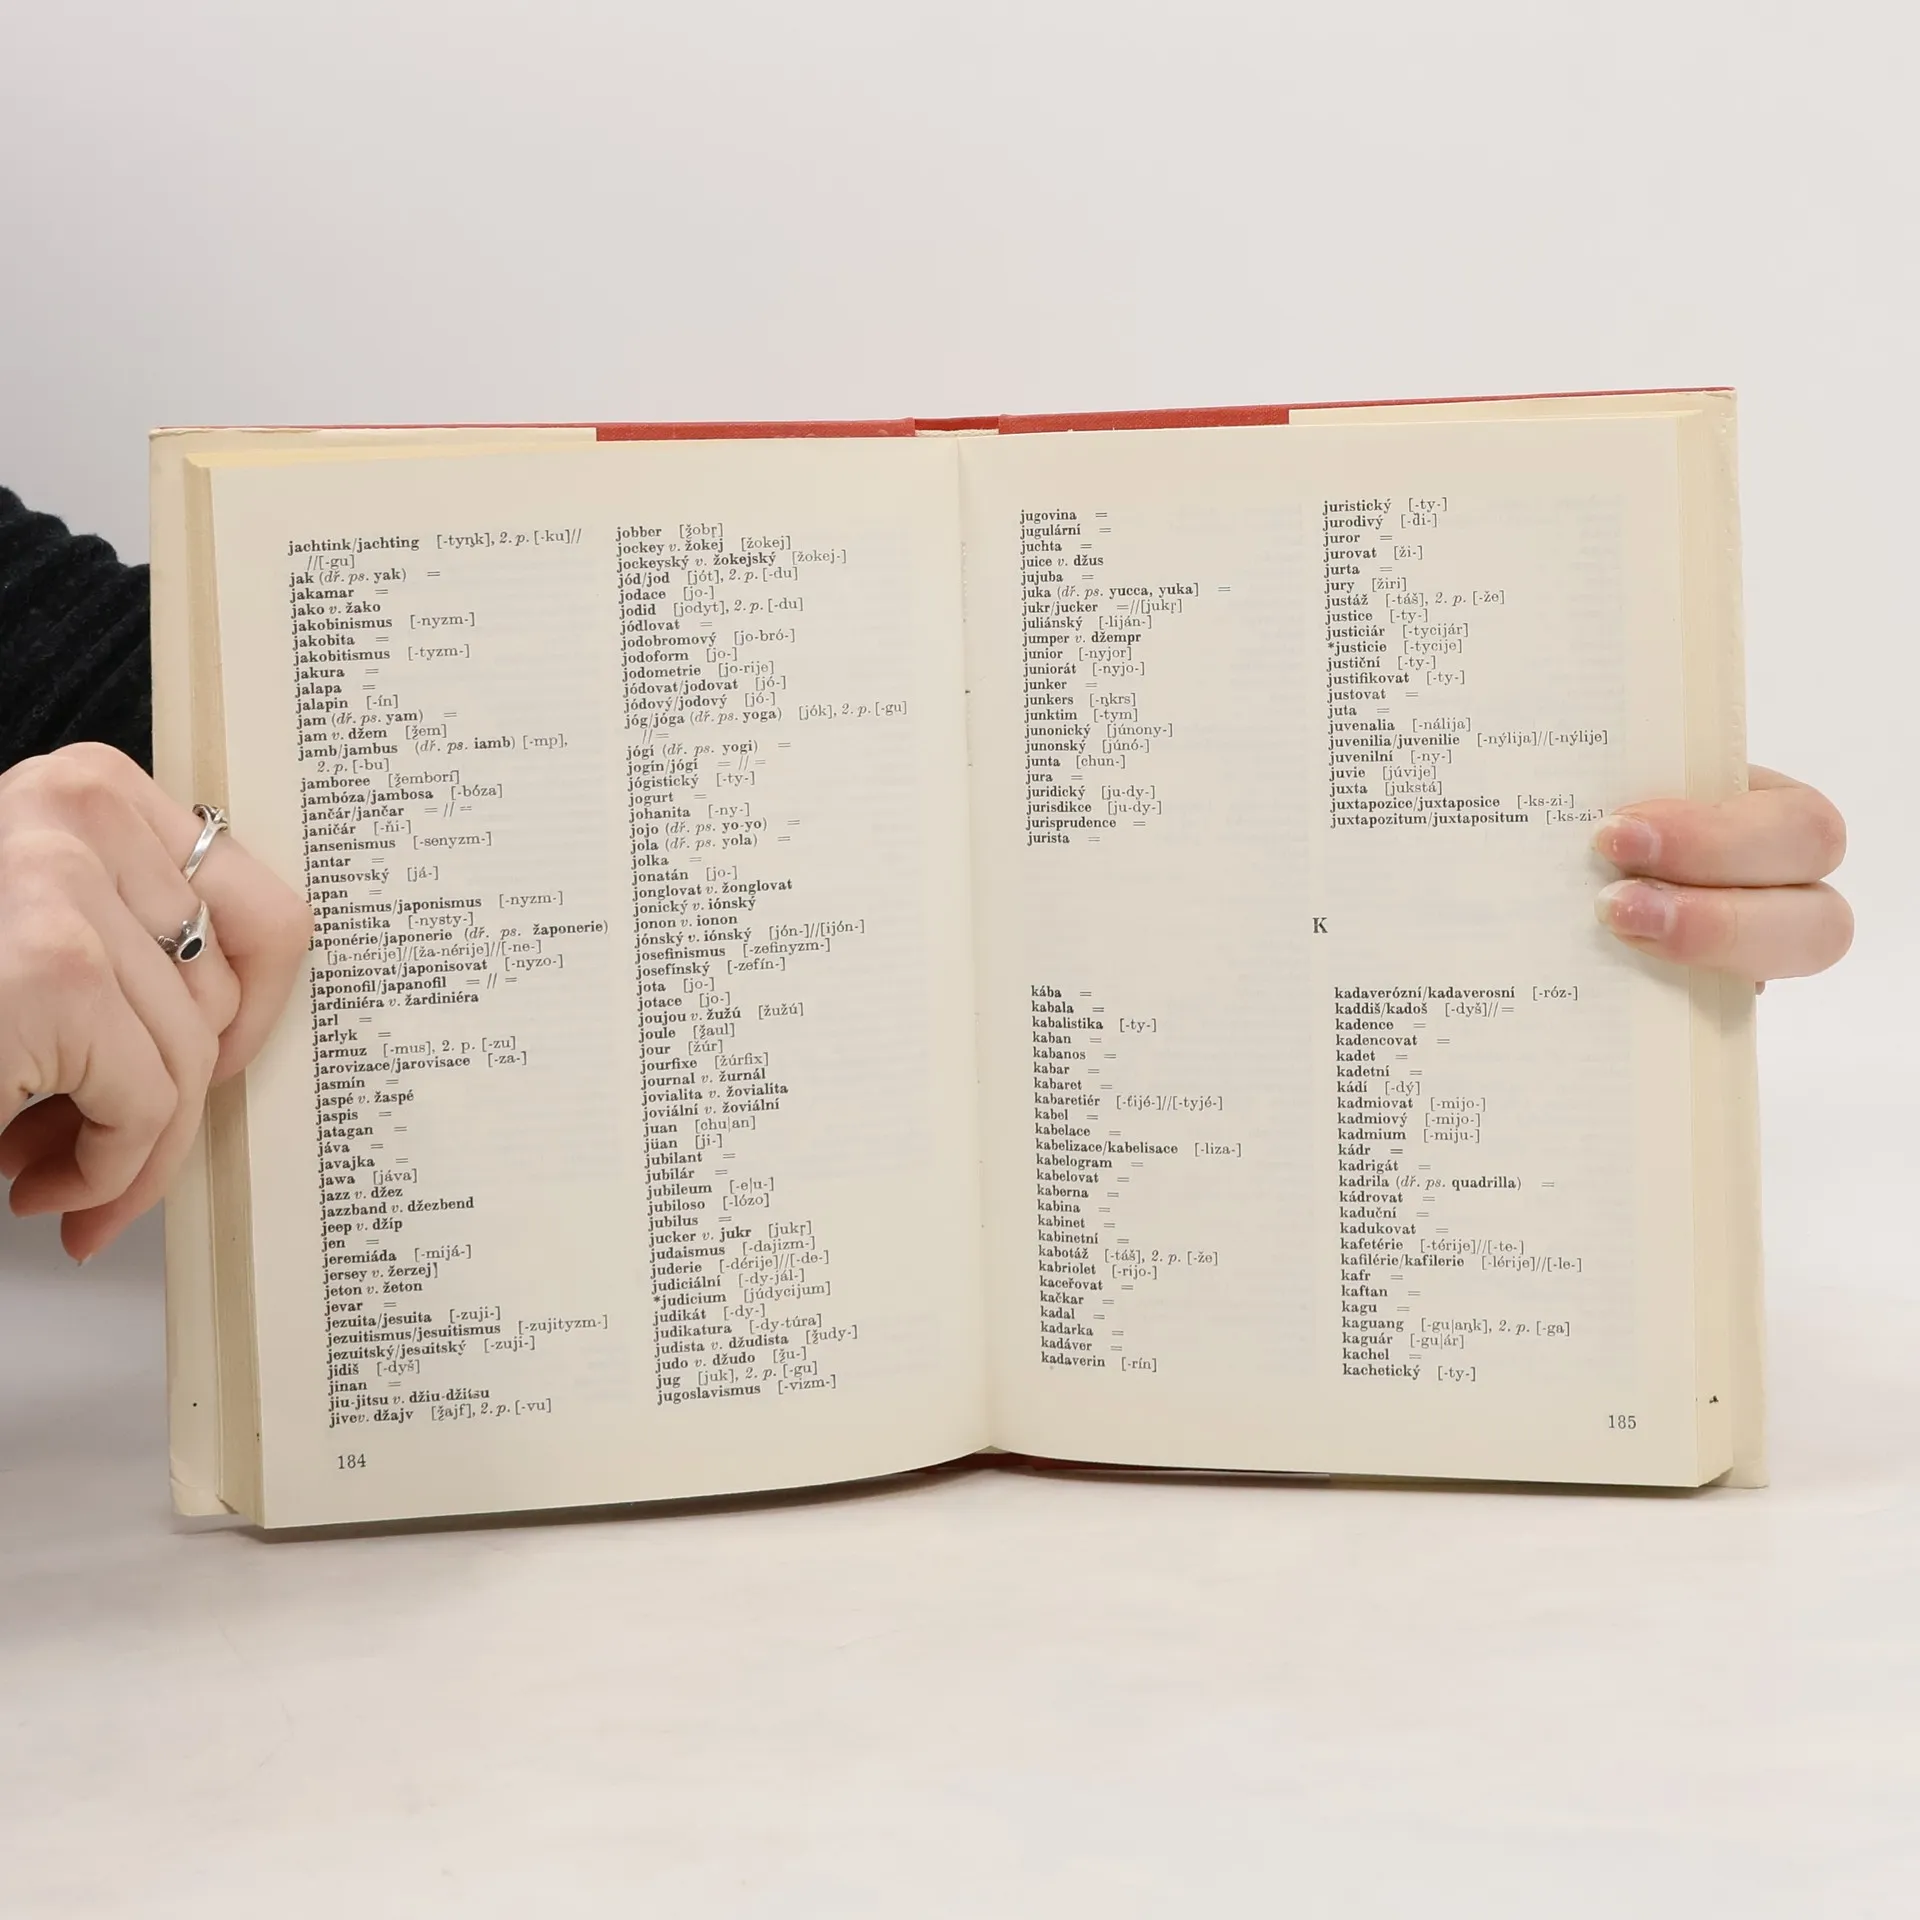 jachtink/jachting [-tyŋk], 2. p. [-ku]//
//[-gu]
jak (dř. ps. yak) =
jakamar =
jako v. žako
jakobinismus [-nyzm-]
jakobita =
jakobitismus [-tyzm-]
jakura =
jalapa =
jalapin [-ín]
jam (dř. ps. yam) =
jam v. džem [ǯem]
jamb/jambus (dř. ps. iamb) [-mp],
2. p. [-bu]
jamboree [ǯemborí]
jambóza/jambosa [-bóza]
jančár/jančar = // =
janičár [-ňi-]
jansenismus [-senyzm-]
jantar =
janusovský [já-]
japan =
apanismus/japonismus [-nyzm-]
apanistika [-nysty-]
japonérie/japonerie (dř. ps. žaponerie)
[ja-nérije]//[ža-nérije]//[-ne-]
japonizovat/japonisovat [-nyzo-]
japonofil/japanofil = // =
jardiniéra v. žardiniéra
jarl =
jarlyk =
jarmuz [-mus], 2. p. [-zu]
jarovizace/jarovisace [-za-]
jasmín =
jaspé v. žaspé
jaspis =
jatagan =
jáva =
javajka =
jawa [jáva]
jazz v. džez
jazzband v. džezbend
jeep v. džíp
jen =
jeremiáda [-mijá-]
jersey v. žerzej]
jeton v. žeton
jevar =
jezuita/jesuita [-zuji-]
jezuitismus/jesuitismus [-zujityzm-]
jezuitský/jesuitský [-zuji-]
jidiš [-dyš]
jinan =
jiu-jitsu v. džiu-džitsu
jivev. džajv [ǯajf], 2. p. [-vu]
184
jobber [ǯobr̥]
jockey v. žokej [žokej]
jockeyský v. žokejský [žokej-]
jód/jod [jót], 2. p. [-du]
jodace [jo-]
jodid [jodyt], 2. p. [-du]
jódlovat =
jodobromový [jo-bró-]
jodoform [jo-]
jodometrie [jo-rije]
jódovat/jodovat [jó-]
jódový/jodový [jó-]
jóg/jóga (dř. ps. yoga) [jók], 2. p. [-gu]
// =
jógí (dř. ps. yogi) =
jogín/jógí = // =
jógistický [-ty-]
jogurt =
johanita [-ny-]
jojo (dř. ps. yo-yo) =
jola (dř. ps. yola) =
jolka =
jonatán [jo-]
jonglovat v. žonglovat
jonický v. iónský
jonon v. ionon
jónský v. iónský [jón-]//[ijón-]
josefinismus [-zefinyzm-]
josefínský [-zefín-]
jota [jo-]
jotace [jo-]
joujou v. žužú [žužú]
joule [ǯaul]
jour [žúr]
jourfixe [žúrfix]
journal v. žurnál
jovialita v. žovialita
joviální v. žoviální
juan [chu|an]
jüan [ji-]
jubilant =
jubilár =
jubileum [-e|u-]
jubiloso [-lózo]
jubilus =
jucker v. jukr [jukr̥]
judaismus [-dajizm-]
juderie [-dérije]//[-de-]
judiciální [-dy-jál-]
*judicium [júdycijum]
judikát [-dy-]
judikatura [-dy-túra]
judista v. džudista [ǯudy-]
judo v. džudo [ǯu-]
jug [juk], 2. p. [-gu]
jugoslavismus [-vizm-]
jugovina =
jugulární =
juchta =
juice v. džus
jujuba =
juka (dř. ps. yucca, yuka] =
jukr/jucker =//[jukr̥]
juliánský [-liján-]
jumper v. džempr
junior [-nyjor]
juniorát [-nyjo-]
junker =
junkers [-ŋkrs]
junktim [-tym]
junonický [júnony-]
junonský [júnó-]
junta [chun-]
jura =
juridický [ju-dy-]
jurisdikce [ju-dy-]
jurisprudence =
jurista =
juristický [-ty-]
jurodivý [-ďi-]
juror =
jurovat [ži-]
jurta =
jury [žiri]
justáž [-táš], 2. p. [-že]
justice [-ty-]
justiciár [-tycijár]
*justicie [-tycije]
justiční [-ty-]
justifikovat [-ty-]
justovat =
juta =
juvenalia [-nálija]
juvenilia/juvenilie [-nýlija]//[-nýlije]
juvenilní [-ny-]
juvie [júvije]
juxta [jukstá]
juxtapozice/juxtaposice [-ks-zi-]
juxtapozitum/juxtapositum [-ks-zi-]
K
kába =
kabala =
kabalistika [-ty-]
kaban =
kabanos =
kabar =
kabaret =
kabaretiér [-ťijé-]//[-tyjé-]
kabel =
kabelace =
kabelizace/kabelisace [-liza-]
kabelogram =
kabelovat =
kaberna =
kabina =
kabinet =
kabinetní =
kabotáž [-táš], 2. p. [-že]
kabriolet [-rijo-]
kaceřovat =
kačkar =
kadal =
kadarka =
kadáver =
kadaverin [-rín]
kadaverózní/kadaverosní [-róz-]
kaddiš/kadoš [-dyš]//=
kadence =
kadencovat =
kadet =
kadetní =
kádí [-dý]
kadmiovat [-mijo-]
kadmiový [-mijo-]
kadmium [-miju-]
kádr =
kadrigát =
kadrila (dř. ps. quadrilla) =
kádrovat =
kaduční =
kadukovat =
kafetérie [-térije]//[-te-]
kafilérie/kafilerie [-lérije]//[-le-]
kafr =
kaftan =
kagu =
kaguang [-gu|aŋk], 2. p. [-ga]
kaguár [-gu|ár]
kachel =
kachetický [-ty-]
185